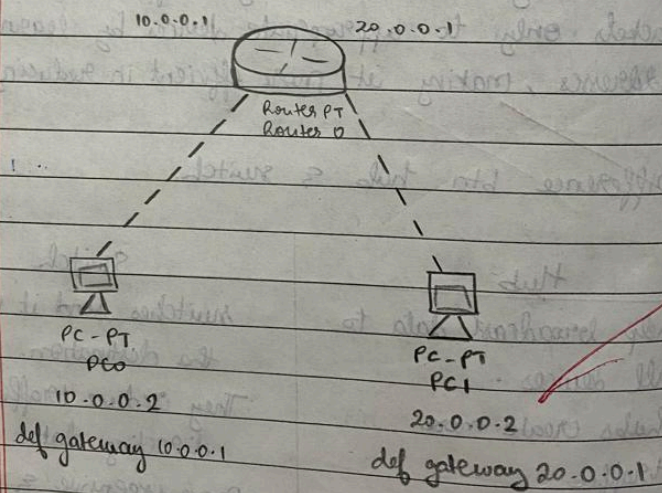 10.0.0.1
20.0.0.1
Router PT
Router 0
PC-PT
PC0
10.0.0.2
def gateway 10.0.0.1
PC-PT
PC1
20.0.0.2
def gateway 20.0.0.1